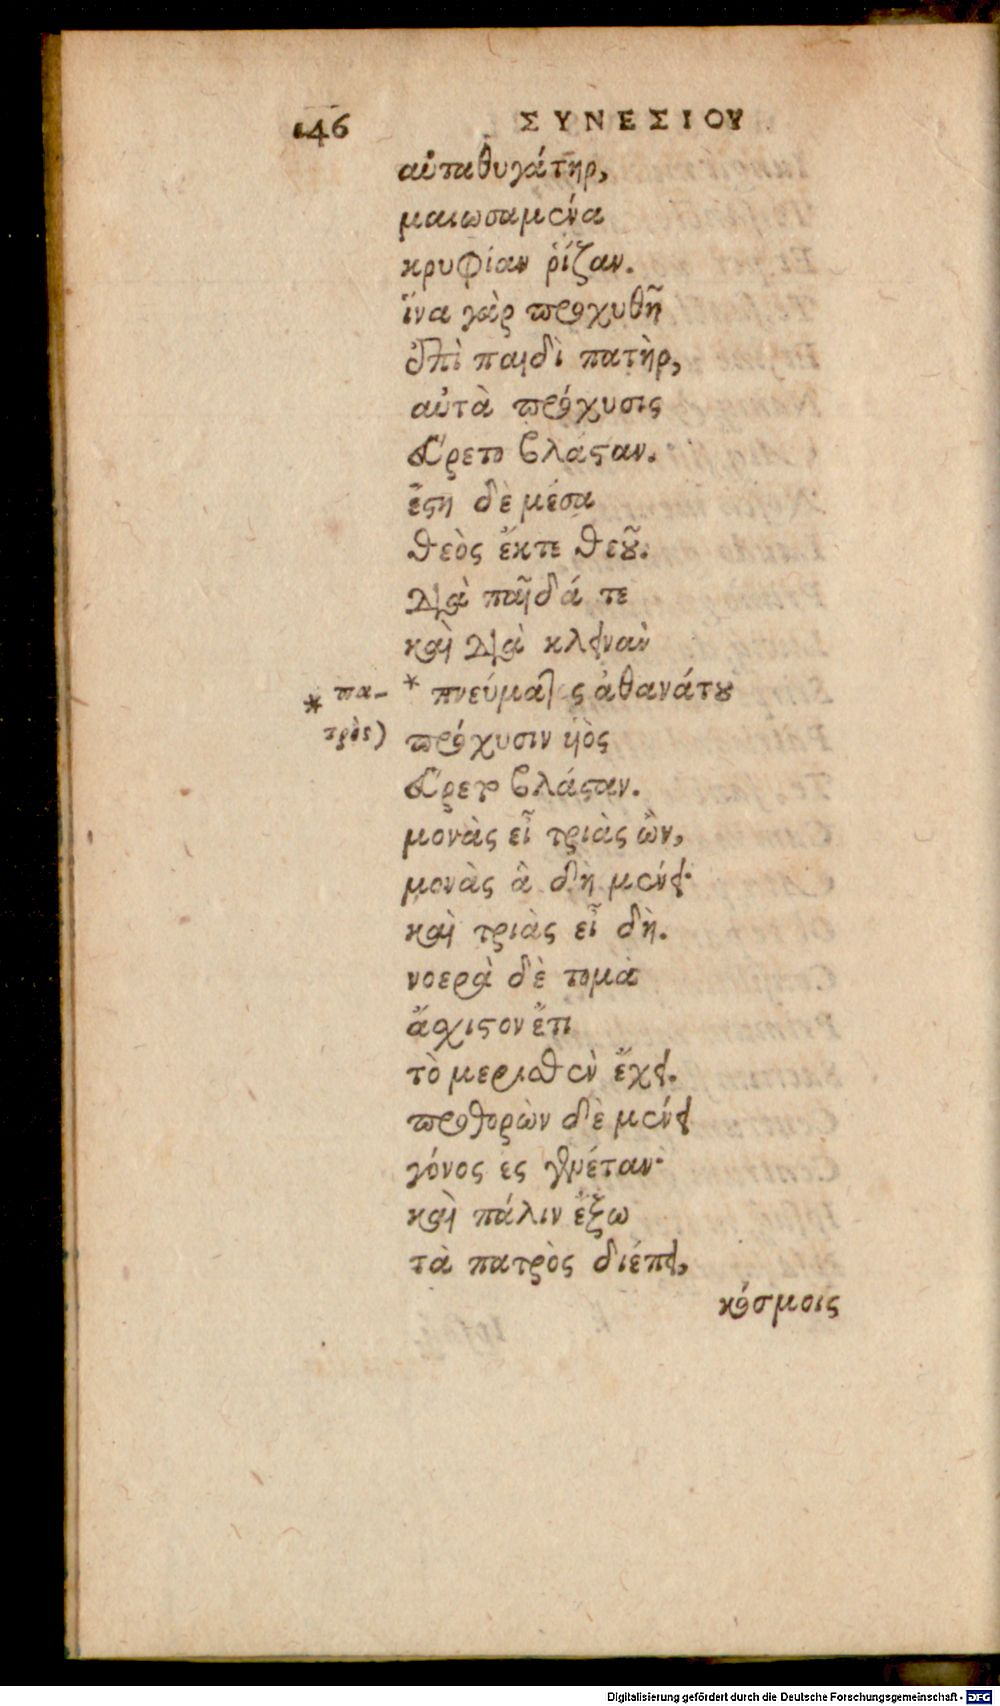 146 ΣΥΝΕΣΙΟΥ
αὐταθυγάτηρ,
μαιωσαμένα
κρυφίαν ῥίζαν.
ἵνα γὰρ προχυθῇ
ἐπὶ παιδὶ πατὴρ,
αὐτὰ πρόχυσις
εὕρετο βλάςαν.
ἔςη δὲ μέσα
θεὸς ἔκτε θεοῦ.
διὰ παῖδά τε
καὶ διὰ κλειναὺ
* πα- * πνεύματος ἀθανάτου
τρὸς) πρόχυσιν υἱὸς
εὕρετο βλάςαν.
μονὰς εἶ τριὰς ὢν,
μονὰς ἃ δὴ μένει·
καὶ τριὰς εἶ δὴ.
νοερὰ δὲ τομὰ
ἄσχιςον ἔτι
τὸ μερισθὲν ἔχει.
προθορὼν δὲ μένει
γόνος ες γενέταν·
καὶ πάλιν ἔξω
τὰ πατρὸς διέπει,
κόσμοις
Digitalisierung gefördert durch die Deutsche Forschungsgemeinschaft - DFG